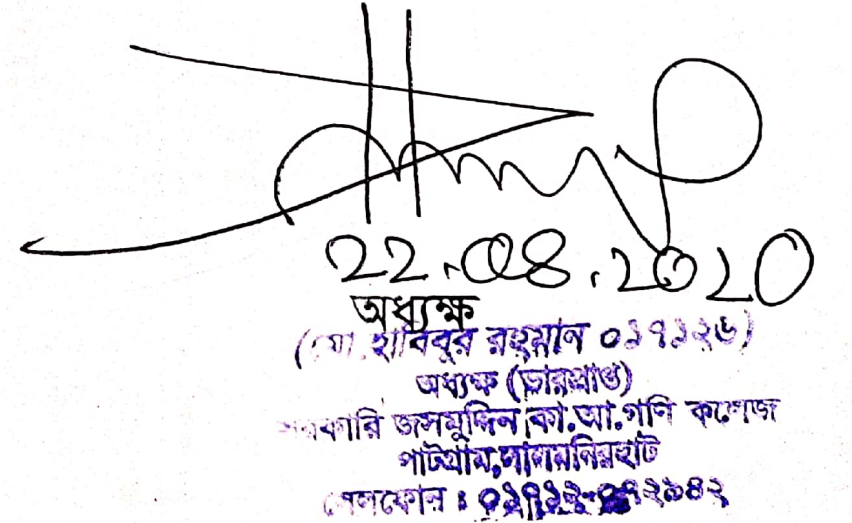 22.08.2020
অধ্যক্ষ
(মো. হাবিবুর রহমান ০১৭১২৬)
অধ্যক্ষ (ভারপ্রাপ্ত)
সরকারি জসমুদ্দিন কা.আ.গণি কলেজ
পাটগ্রাম,লালমনিরহাট
সেলফোন :